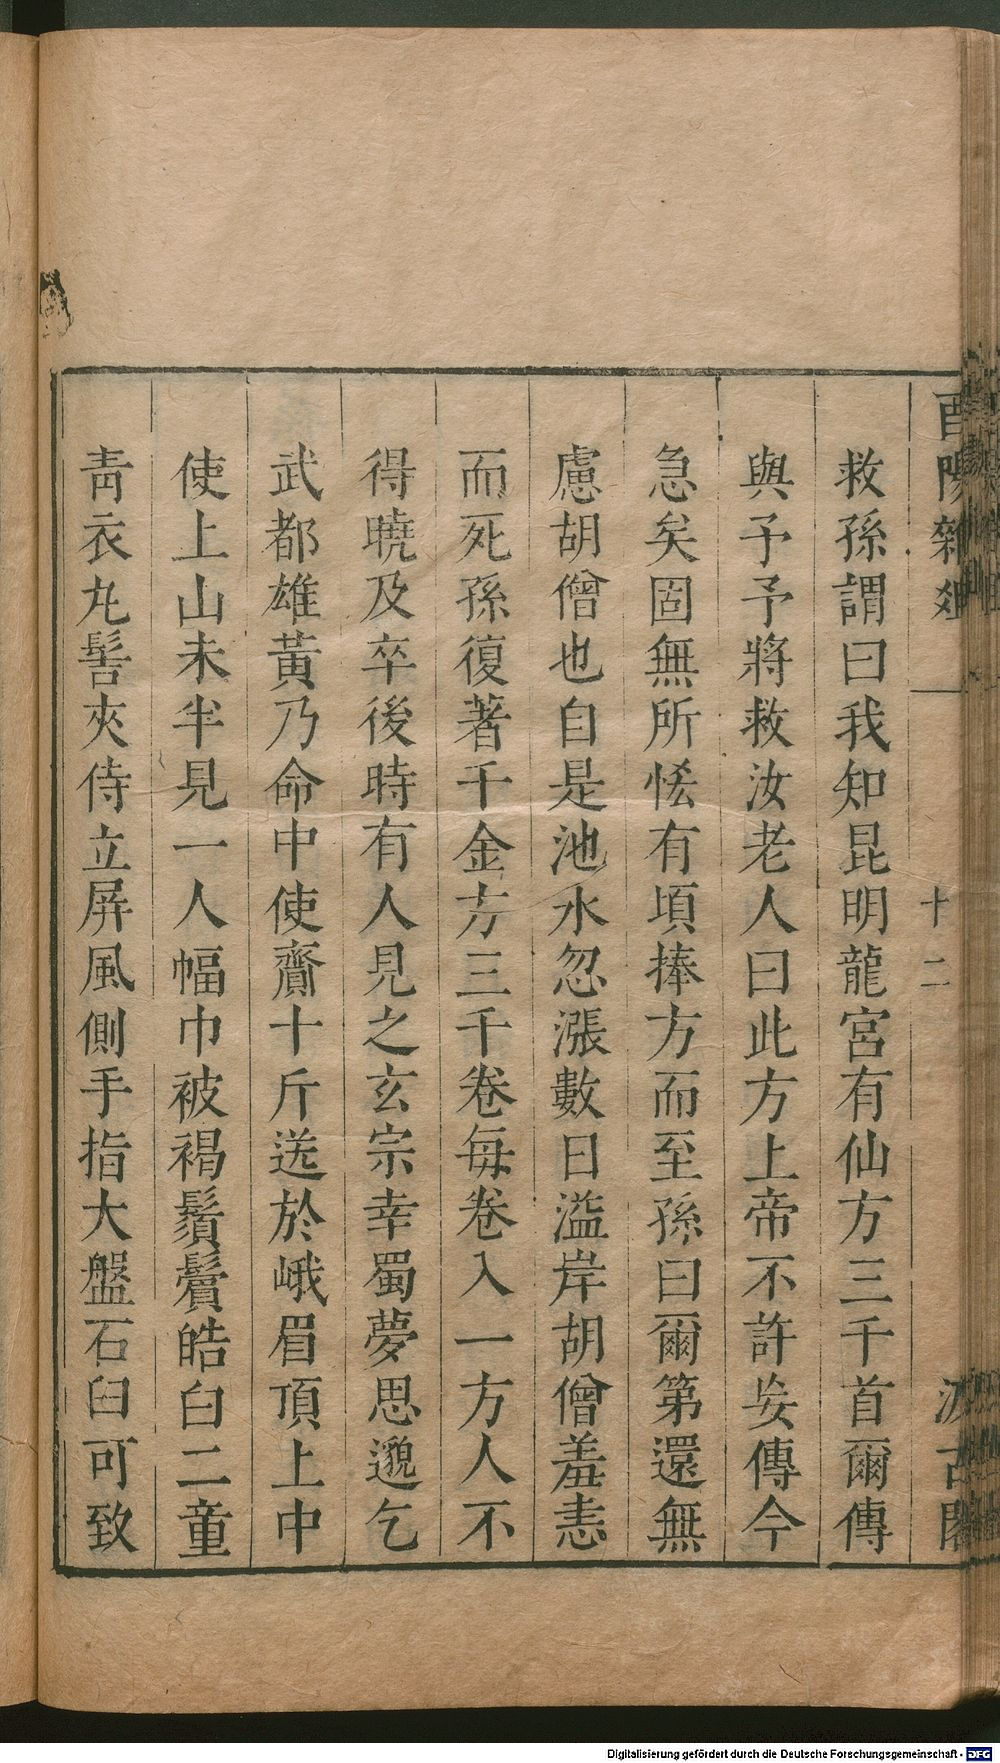 酉陽雜俎
十二
汲古閣
救孫謂曰我知昆明龍宮有仙方三千首爾傳
與予予將救汝老人曰此方上帝不許妄傳今
急矣固無所恡有頃捧方而至孫曰爾第還無
慮胡僧也自是池水忽漲數日溢岸胡僧羞恚
而死孫復著千金方三千卷每卷入一方人不
得曉及卒後時有人見之玄宗幸蜀夢思邈乞
武都雄黃乃命中使齎十斤送於峨眉頂上中
使上山未半見一人幅巾被褐鬚鬢皓白二童
青衣丸髻夾侍立屏風側手指大盤石臼可致
Digitalisierung gefördert durch die Deutsche Forschungsgemeinschaft - DFG